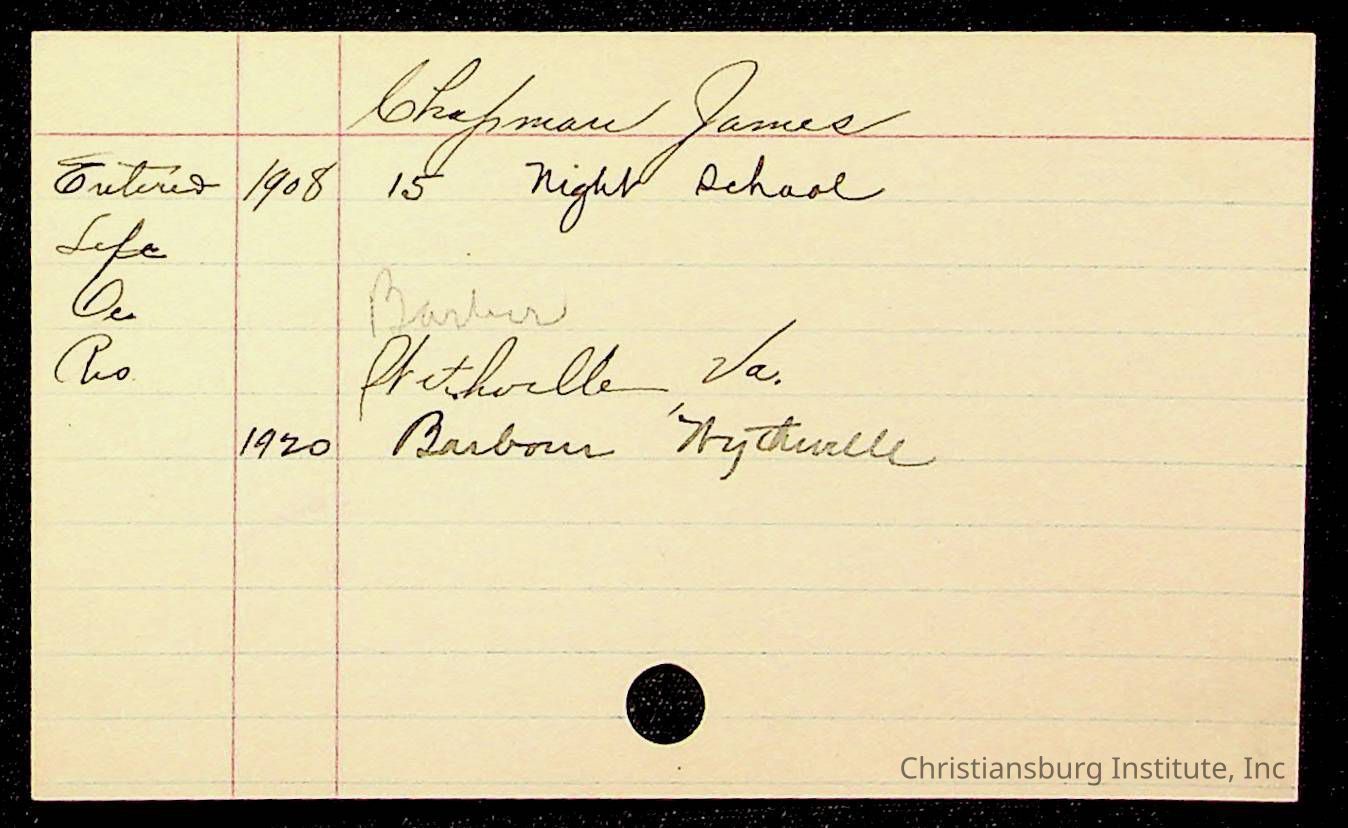 Chapman James
Entered 1908 15 Night School
Left
Oc Barber
Res Wytheville Va.
1920 Barbour Wytheville
Christiansburg Institute, Inc